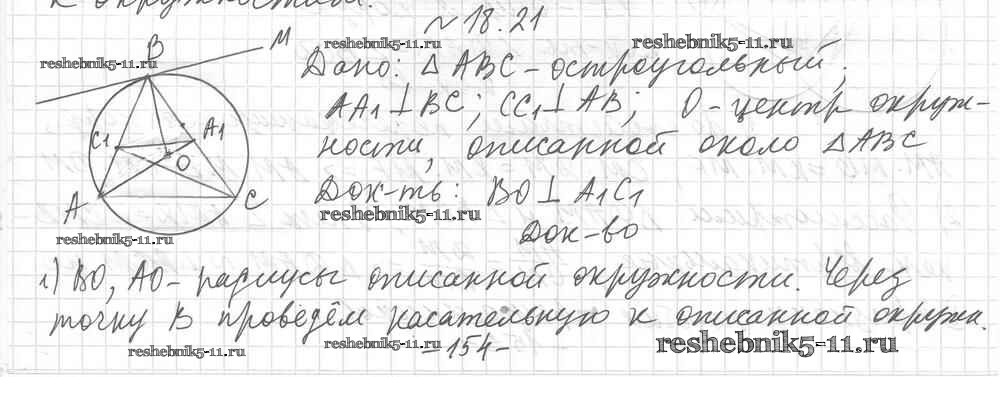 к окружностям.
№18.21
B
M
reshebnik5-11.ru
reshebnik5-11.ru
reshebnik5-11.ru
Дано: △ABC – остроугольный;
AA1⊥BC; CC1⊥AB; O – центр окруж-
C1
A1
O
ности, описанной около △ABC
A
C
Док-ть: BO⊥A1C1
reshebnik5-11.ru
reshebnik5-11.ru
Док-во
1) BO, AO – радиусы описанной окружности. Через
точку B проведём касательную к описанной окружн.
reshebnik5-11.ru
reshebnik5-11.ru
–154–
reshebnik5-11.ru